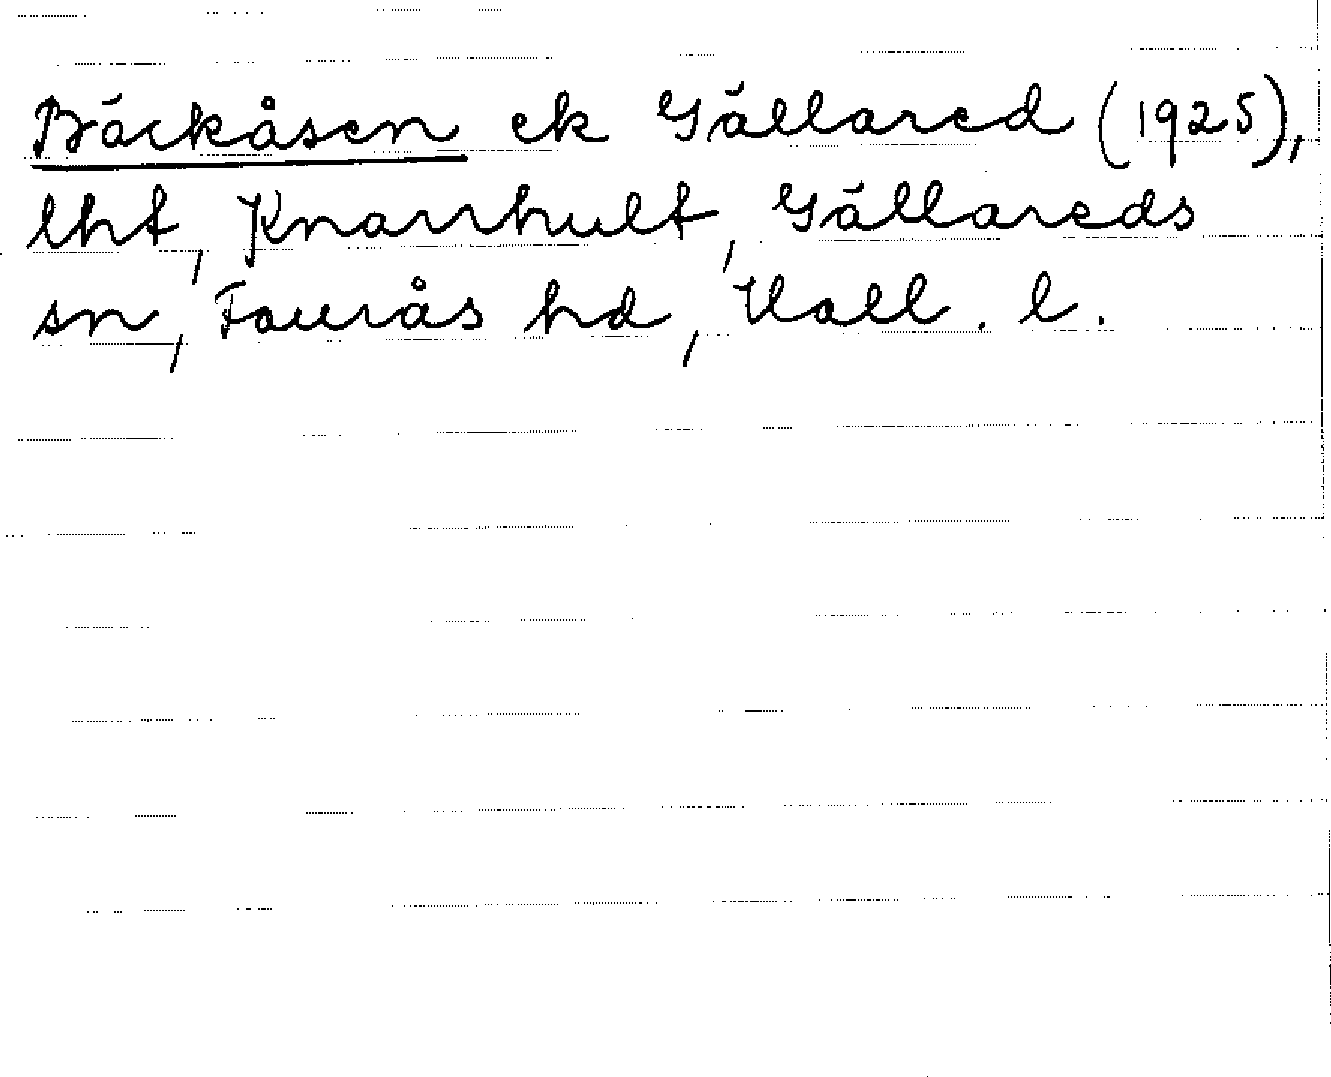 Bäckåsen ek Gällared (1925),
lht, Knarrhult, Gällareds
sn, Faurås hd, Hall. l.